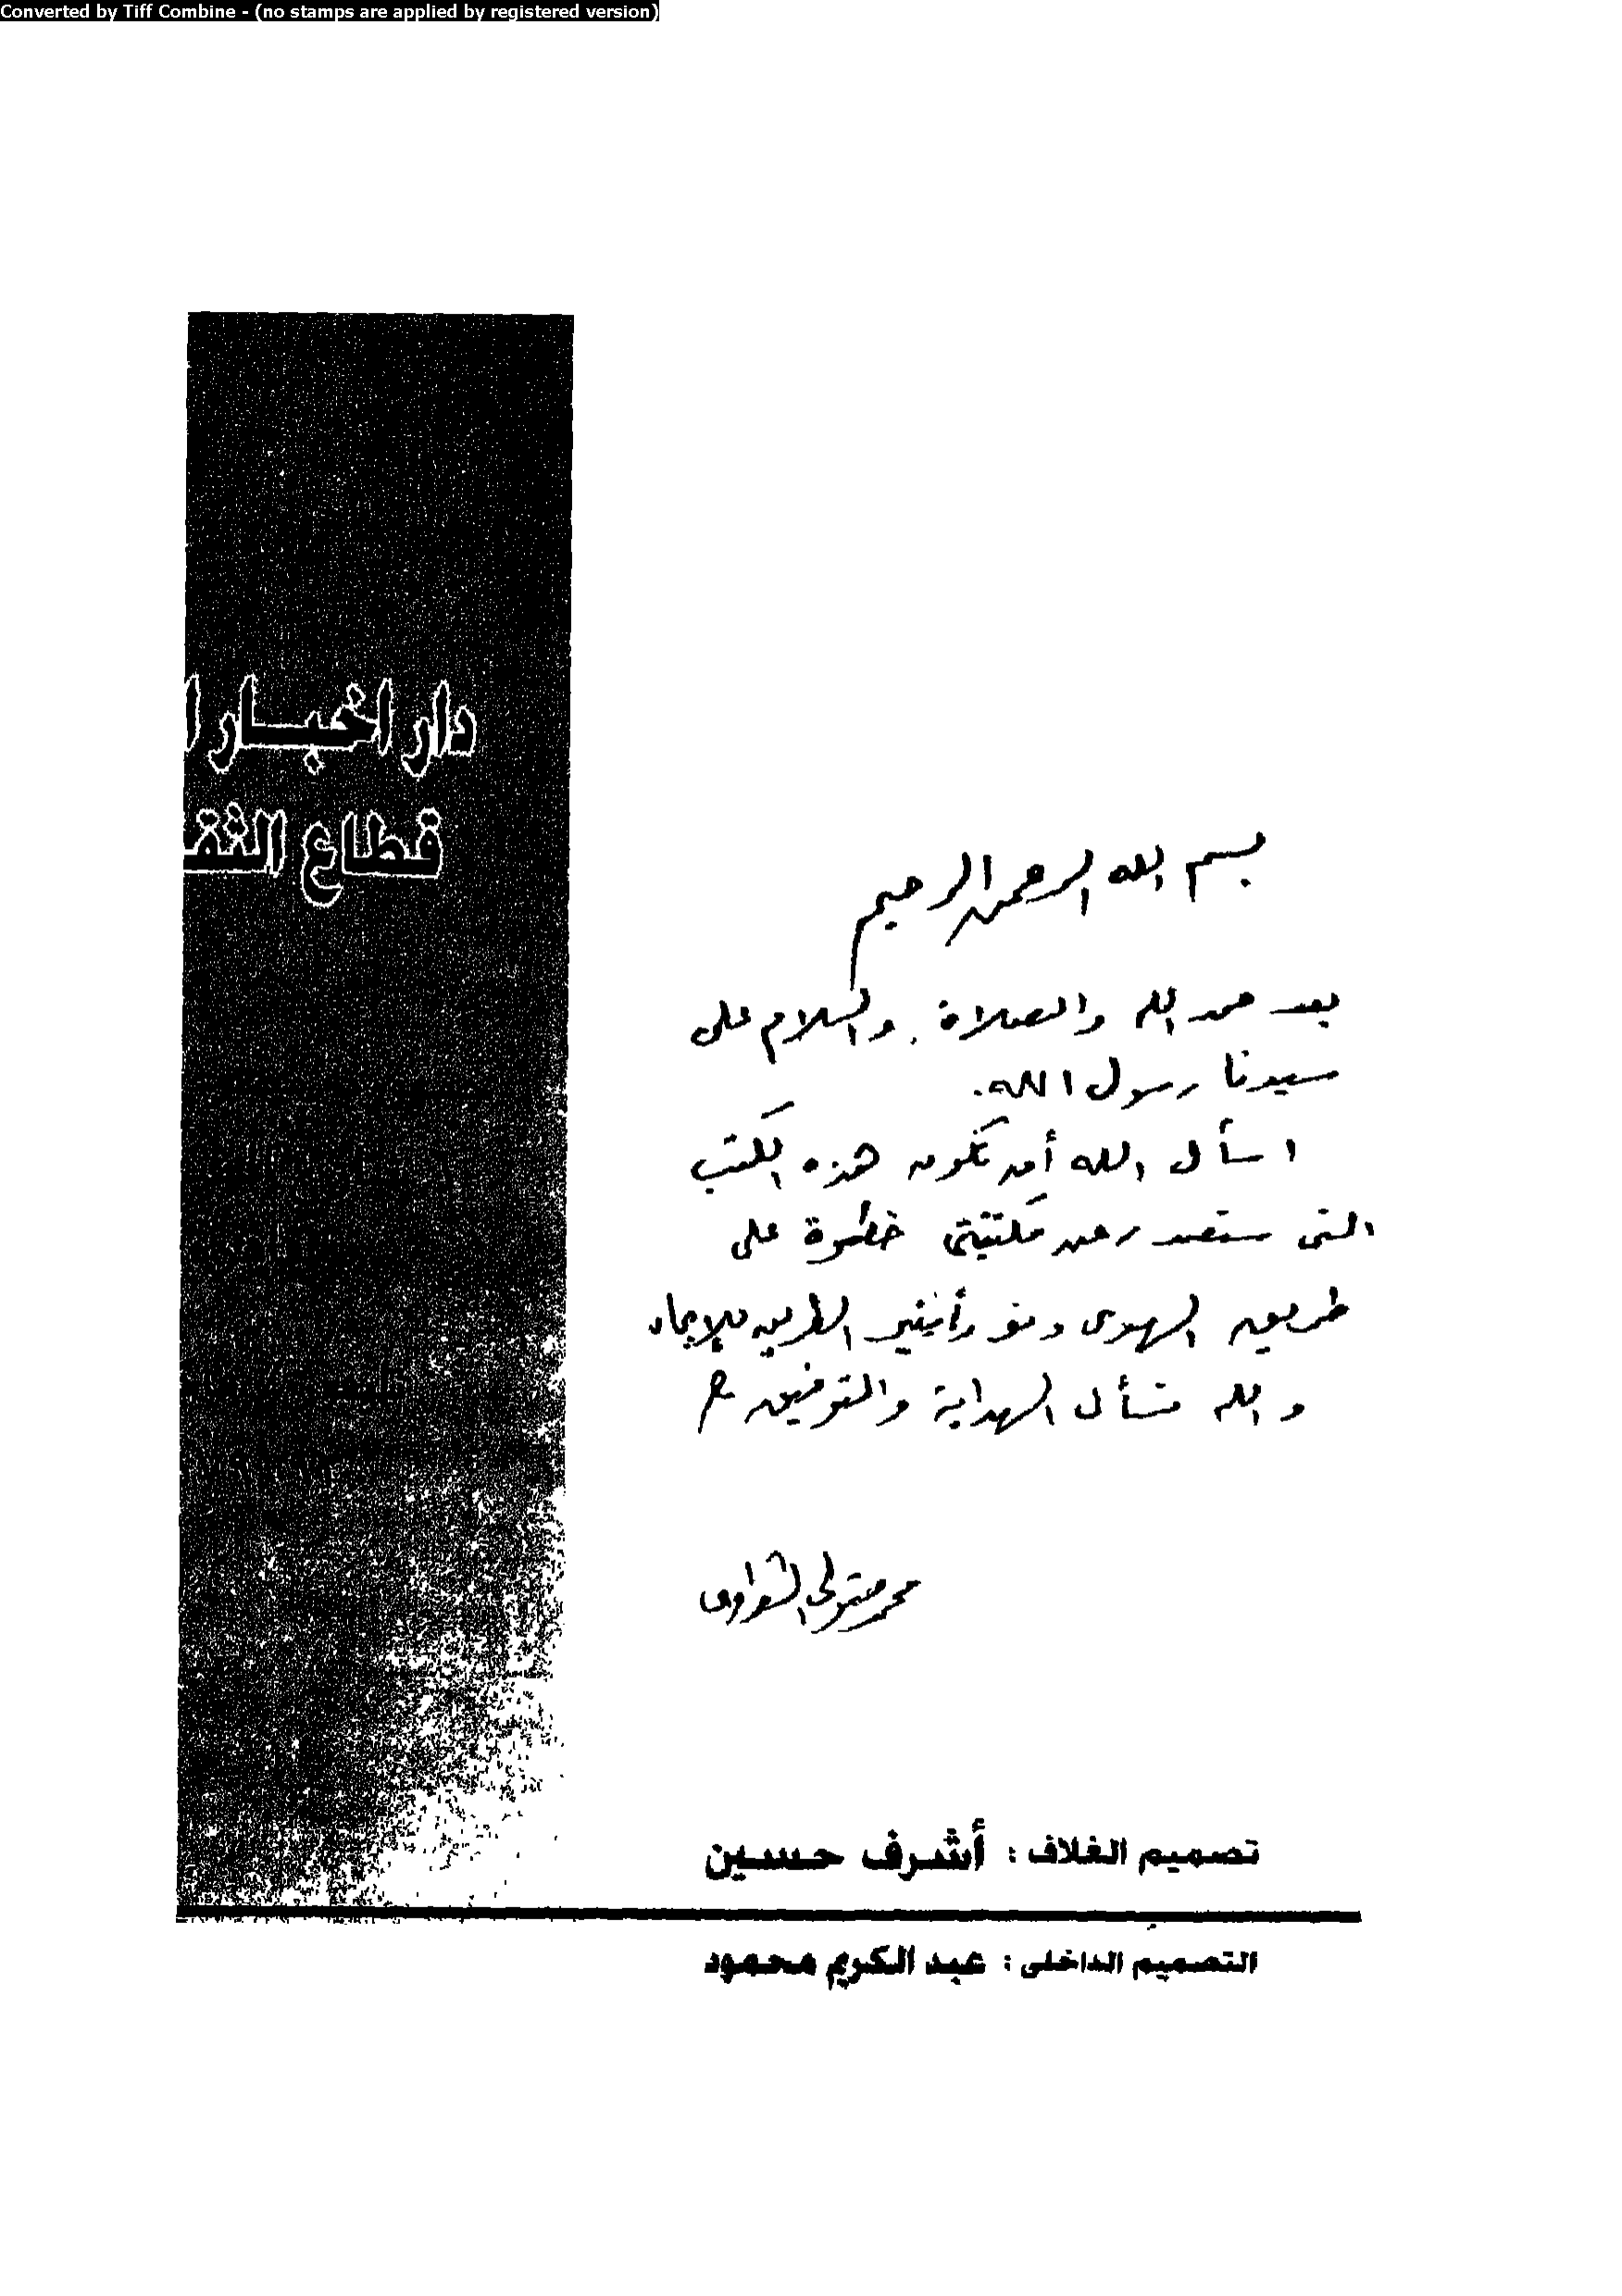 Converted by Tiff Combine - (no stamps are applied by registered version)
دار اخبار ا
قطاع الثقـ
بسم الله الرحمن الرحيم
بعد حمد الله والصلاة والسلام على
سيدنا رسول الله.
اسأل الله أن تكون هذه الكتب
التى ستصدر عن مكتبتى خطوة على
طريق الهدى ونورا ينير الطريق للإيمان
والله نسأل الهداية والتوفيق
محمد متولى الشعراوى
تصميم الغلاف : أشرف حسين
التصميم الداخلى : عبد الكريم محمود